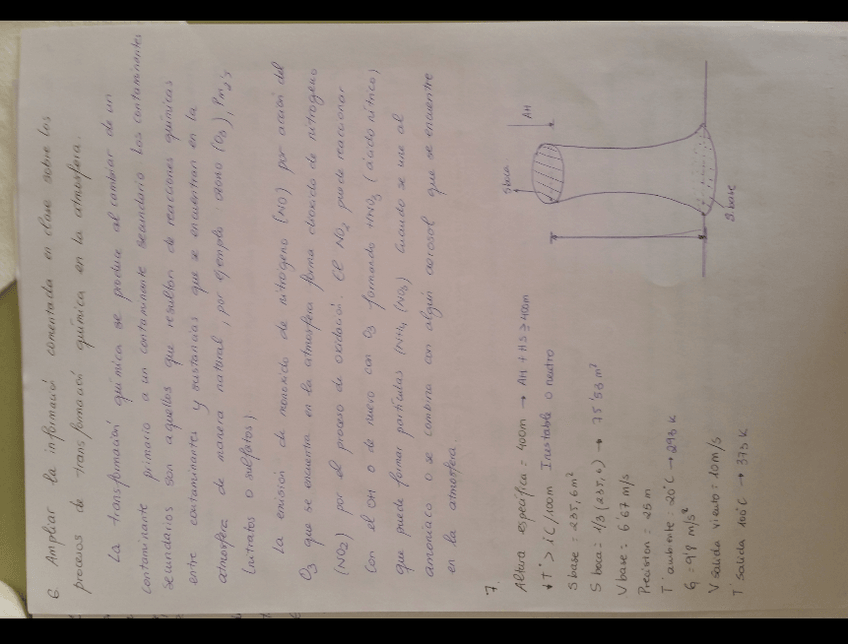 6 Ampliar la información comentada en clase sobre los
procesos de transformación química en la atmosfera.
La transformación química se produce al cambiar de un
contaminante primario a un contaminante secundario. Los contaminantes
secundarios son aquellos que resultan de reacciones químicas
entre contaminantes y sustancias que se encuentran en la
atmosfera de manera natural, por ejemplo: ozono (O3), Pm2's
(nitratos o sulfatos)
La emisión de monoxido de nitrógeno (NO) por acción del
O3 que se encuentra en la atmosfera forma dioxido de nitrogeno
(NO2) por el proceso de oxidación. El NO2 puede reaccionar
con el OH o de nuevo con O3 formando HNO3 (ácido nítrico)
que puede formar partículas (NH4 (NO3) cuando se une al
amoníaco o se combina con algún aerosol que se encuentre
en la atmosfera.
7.
Altura específica = 400m → AH + HS ≥ 400m
↓T' > 1C/100m Inestable o neutro
S base = 235,6 m²
S boca = 1/3 (235,6) → 75'53 m²
V base = 6'67 m/s
Precision = 25 m
T' ambiente = 20°C → 293 K
G = 9'8 m/s²
V salida viento = 10m/s
T' salida 100°C → 373 K
S boca
AH
S. base